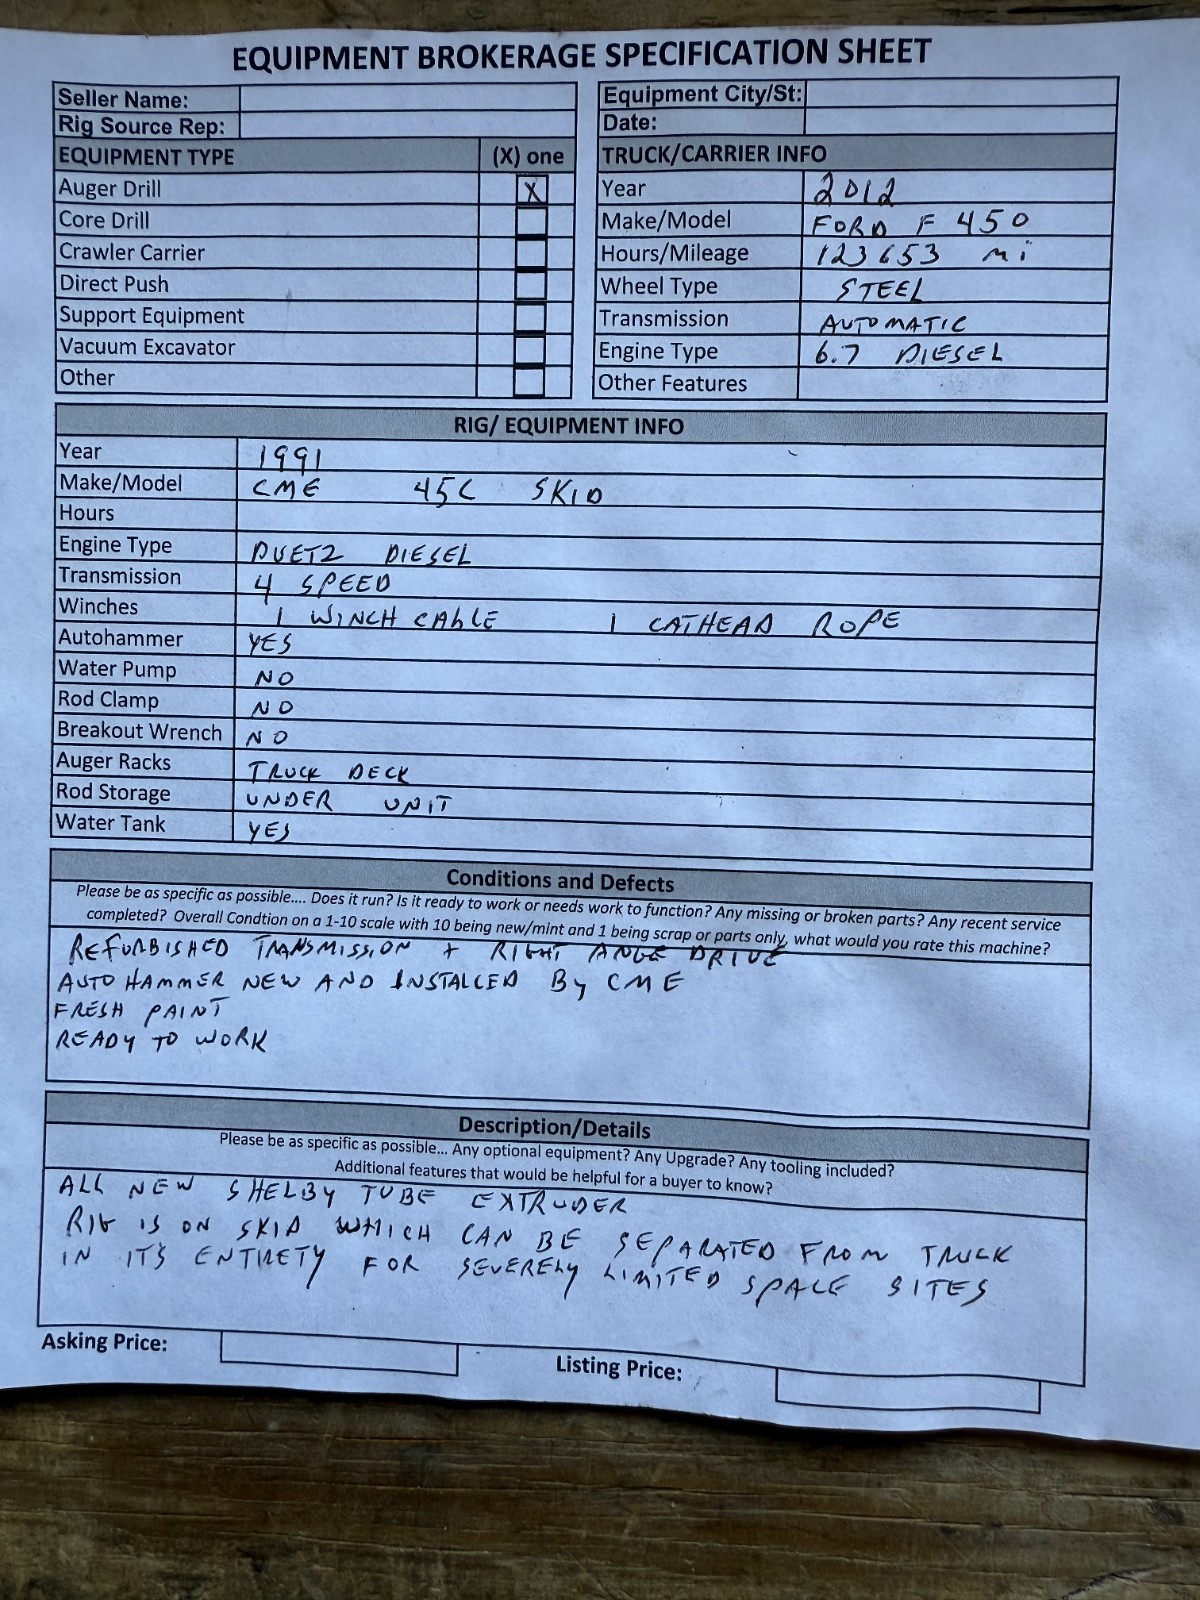 EQUIPMENT BROKERAGE SPECIFICATION SHEET
Seller Name:
Rig Source Rep:
EQUIPMENT TYPE (X) one
Auger Drill X
Core Drill
Crawler Carrier
Direct Push
Support Equipment
Vacuum Excavator
Other
Equipment City/St:
Date:
TRUCK/CARRIER INFO
Year 2012
Make/Model FORD F 450
Hours/Mileage 123653 mi
Wheel Type STEEL
Transmission AUTOMATIC
Engine Type 6.7 DIESEL
Other Features
RIG/ EQUIPMENT INFO
Year 1991
Make/Model CME 45C SKID
Hours
Engine Type DUETZ DIESEL
Transmission 4 SPEED
Winches 1 WINCH CABLE 1 CATHEAD ROPE
Autohammer YES
Water Pump NO
Rod Clamp NO
Breakout Wrench NO
Auger Racks TRUCK DECK
Rod Storage UNDER UNIT
Water Tank YES
Conditions and Defects
Please be as specific as possible.... Does it run? Is it ready to work or needs work to function? Any missing or broken parts? Any recent service
completed? Overall Condtion on a 1-10 scale with 10 being new/mint and 1 being scrap or parts only, what would you rate this machine?
REFURBISHED TRANSMISSION + RIGHT ANGE DRIVE
AUTO HAMMER NEW AND INSTALLED By CME
FRESH PAINT
READY TO WORK
Description/Details
Please be as specific as possible... Any optional equipment? Any Upgrade? Any tooling included?
Additional features that would be helpful for a buyer to know?
ALL NEW SHELBY TUBE EXTRUDER
RIG IS ON SKID WHICH CAN BE SEPARATED FROM TRUCK
IN IT'S ENTIRETY FOR SEVERELY LIMITED SPACE SITES
Asking Price:
Listing Price: